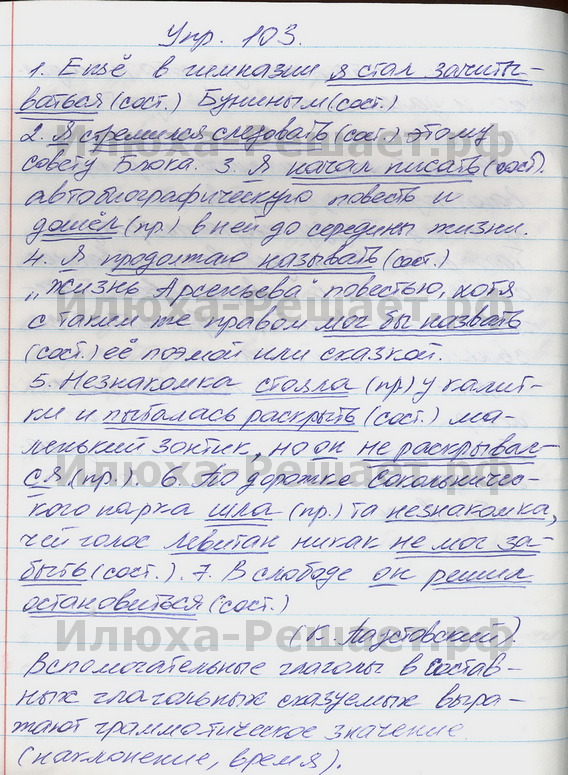 Упр. 103.
1. Ещё в гимназии я стал зачиты-
ваться (сост.) Буниным (сост.)
2. Я стремился следовать (сост.) этому
совету Блока. 3. Я начал писать (сост).
автобиографическую повесть и
дошёл (пр.) в ней до середины жизни.
4. Я продолжаю называть (сост.)
„Жизнь Арсеньева" повестью, хотя
с таким же правом мог бы назвать
(сост.) её поэмой или сказкой.
5. Незнакомка стояла (пр) у калит-
ки и пыталась раскрыть (сост.) ма-
ленький зонтик, но он не раскрывал-
ся (пр.). 6. По дорожке Сокольничес-
кого парка шла (пр.) та незнакомка,
чей голос Левитан никак не мог за-
быть (сост.). 7. В слободе он решил
остановиться (сост.)
(К. Паустовский).
Вспомогательные глаголы в состав-
ных глагольных сказуемых выра-
жают грамматическое значение
(наклонение, время).
Илюха-Решает.рф
Илюха-Решает.рф
Илюха-Решает.рф
Илюха-Решает.рф